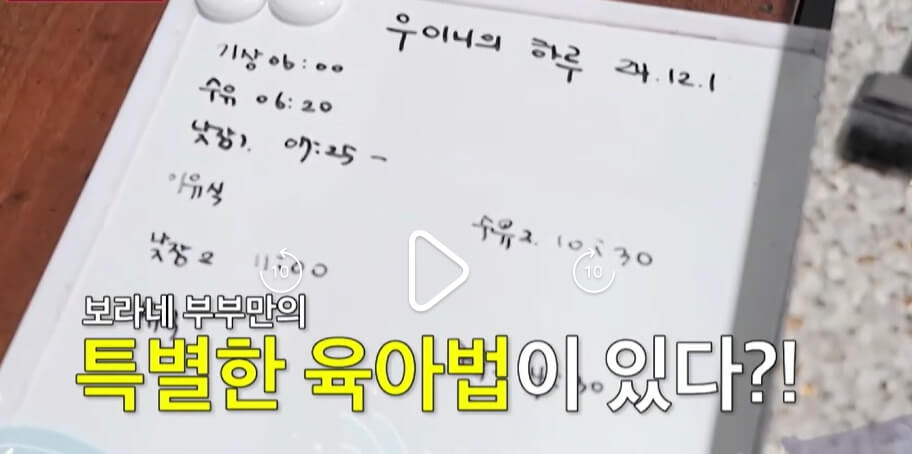 우이니의 하루 24.12.1
기상 06:00
수유 06:20
낮잠1. 07:25 -
이유식
수유2. 10:30
낮잠 2 11:00
10
10
보라네 부부만의
특별한 육아법이 있다?!